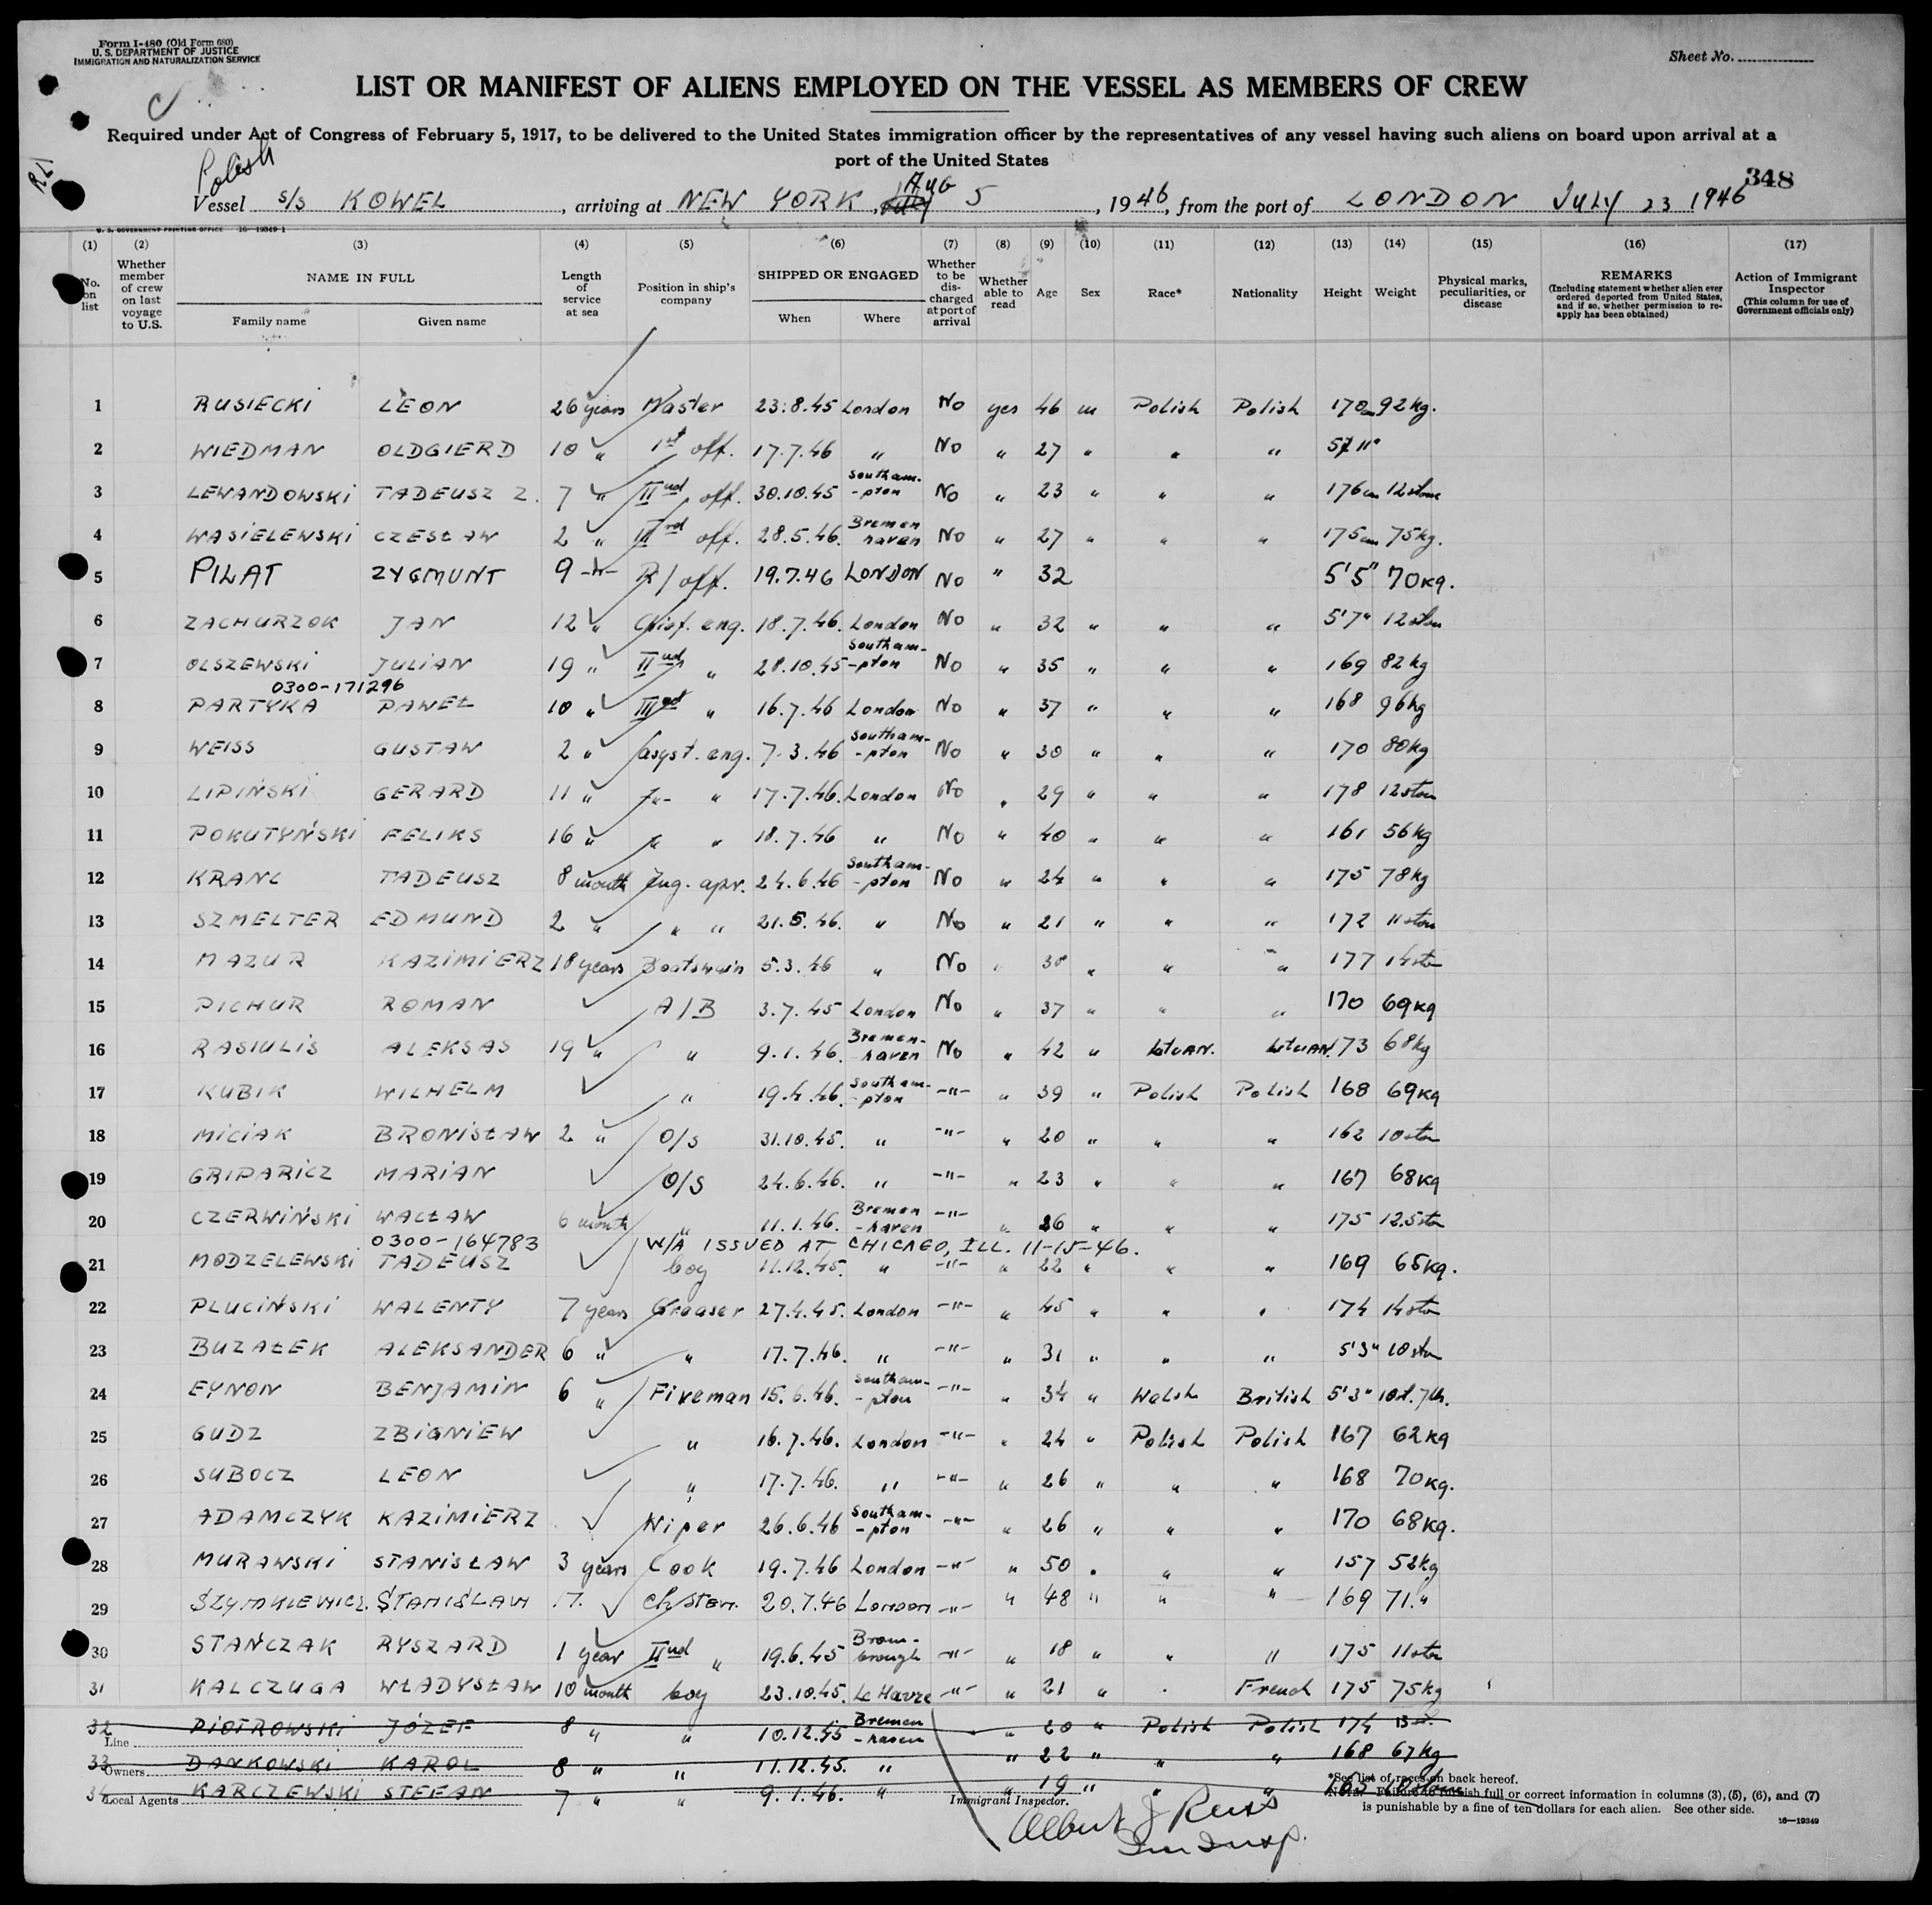 Form I-480 (Old Form 680)
U. S. DEPARTMENT OF JUSTICE
IMMIGRATION AND NATURALIZATION SERVICE
Sheet No.
LIST OR MANIFEST OF ALIENS EMPLOYED ON THE VESSEL AS MEMBERS OF CREW
Required under Act of Congress of February 5, 1917, to be delivered to the United States immigration officer by the representatives of any vessel having such aliens on board upon arrival at a
port of the United States
348
Polish
Vessel s/s KOWEL, arriving at NEW YORK, Aug 5, 1946, from the port of LONDON JULY 23 1946
U. S. GOVERNMENT PRINTING OFFICE 16-19349-1
(1) (2) (3) (4) (5) (6) (7) (8) (9) (10) (11) (12) (13) (14) (15) (16) (17)
No. on list
Whether member of crew on last voyage to U.S.
NAME IN FULL
Family name Given name
Length of service at sea
Position in ship's company
SHIPPED OR ENGAGED
When Where
Whether to be discharged at port of arrival
Whether able to read
Age
Sex
Race*
Nationality
Height
Weight
Physical marks, peculiarities, or disease
REMARKS
(Including statement whether alien ever ordered deported from United States, and if so, whether permission to re-apply has been obtained)
Action of Immigrant Inspector
(This column for use of Government officials only)
1 RUSIECKI LEON 26 years Master 23.8.45 London No yes 46 m Polish Polish 170cm 92kg.
2 WIEDMAN OLDGIERD 10 " 1st off. 17.7.46 " No " 27 " " " 5'11"
3 LEWANDOWSKI TADEUSZ Z. 7 " IInd off. 30.10.45 Southam-pton No " 23 " " " 176cm 12stone
4 WASIELEWSKI CZESŁAW 2 " IIIrd off. 28.5.46. Bremenhaven No " 27 " " " 175cm 75kg.
5 PILAT ZYGMUNT 9 -"- R/off. 19.7.46 LONDON No " 32 5'5" 70kg.
6 ZACHURZOK JAN 12 " Chief. eng. 18.7.46. London No " 32 " " " 5'7" 12ston
7 OLSZEWSKI JULIAN 19 " IInd " 28.10.45 Southam-pton No " 35 " " " 169 82kg
0300-171296
8 PARTYKA PAWEŁ 10 " IIIrd " 16.7.46 London No " 37 " " " 168 96kg
9 WEISS GUSTAW 2 " asyst. eng. 7.3.46 Southam-pton No " 30 " " " 170 80kg
10 LIPIŃSKI GERARD 11 " -"- " 17.7.46. London No " 29 " " " 178 12ston
11 POKUTYŃSKI FELIKS 16 " " " 18.7.46 " No " 40 " " " 161 56kg
12 KRANC TADEUSZ 8 month Eng. apr. 24.6.46 Southam-pton No " 24 " " " 175 78kg
13 SZMELTER EDMUND 2 " " " 21.5.46. " No " 21 " " " 172 11ston
14 MAZUR KAZIMIERZ 18 years Boatswain 5.3.46 " No " 38 " " " 177 14ston
15 PICHUR ROMAN A/B 3.7.45 London No " 37 " " " 170 69kg
16 RASIULIS ALEKSAS 19 " " 9.1.46. Bremen-haven No " 42 " LITUAN. LITUAN. 173 68kg
17 KUBIK WILHELM " 19.4.46. Southam-pton -"- " 39 " Polish Polish 168 69kg
18 MICIAK BRONISŁAW 2 " O/S 31.10.45. " -"- " 20 " " " 162 10ston
19 GRIPARICZ MARIAN O/S 24.6.46. " -"- " 23 " " " 167 68kg
20 CZERWIŃSKI WACŁAW 6 month " 11.1.46. Bremen-haven -"- " 26 " " " 175 12.5ston
0300-164783 W/A ISSUED AT CHICAGO, ILL. 11-15-46.
21 MODZELEWSKI TADEUSZ boy 11.12.45. " -"- " 22 " " " 169 65kg.
22 PLUCIŃSKI WALENTY 7 years Greaser 27.4.45. London -"- " 45 " " " 174 14ston
23 BUZAŁEK ALEKSANDER 6 " " 17.7.46. " -"- " 31 " " " 5'3" 10ston
24 EYNON BENJAMIN 6 " Fireman 15.6.46. Southam-pton -"- " 34 " Welsh British 5'3" 10st. 7lb.
25 GUDZ ZBIGNIEW " 16.7.46. London -"- " 24 " Polish Polish 167 62kg
26 SUBOCZ LEON " 17.7.46. " -"- " 26 " " " 168 70kg.
27 ADAMCZYK KAZIMIERZ Wiper 26.6.46 Southam-pton -"- " 26 " " " 170 68kg.
28 MURAWSKI STANISŁAW 3 years Cook 19.7.46 London -"- " 50 " " " 157 52kg
29 SZYMKIEWICZ. STANISLAW 17. Ch/Stew. 20.7.46 London -"- " 48 " " " 169 71."
30 STAŃCZAK RYSZARD 1 year IInd " 19.6.45 Brom-brough -"- " 18 " " " 175 11ston
31 KALCZUGA WŁADYSŁAW 10 month boy 23.10.45. Le Havre -"- " 21 " " French 175 75kg
32 PIOTROWSKI JÓZEF 8 " " 10.12.45 Bremen-haven " 20 " Polish Polish 174
Line
33 DANKOWSKI KAROL 8 " " 11.12.45. " " 22 " " " 168 67kg
Owners
34 KARCZEWSKI STEFAN 7 " " 9.1.46. " " 19 " " " 163 10stone
Local Agents
Immigrant Inspector.
Albert J Reiss
Imm Insp.
*See list of races on back hereof.
NOTE.—Failure to furnish full or correct information in columns (3), (5), (6), and (7)
is punishable by a fine of ten dollars for each alien. See other side.
16—19349